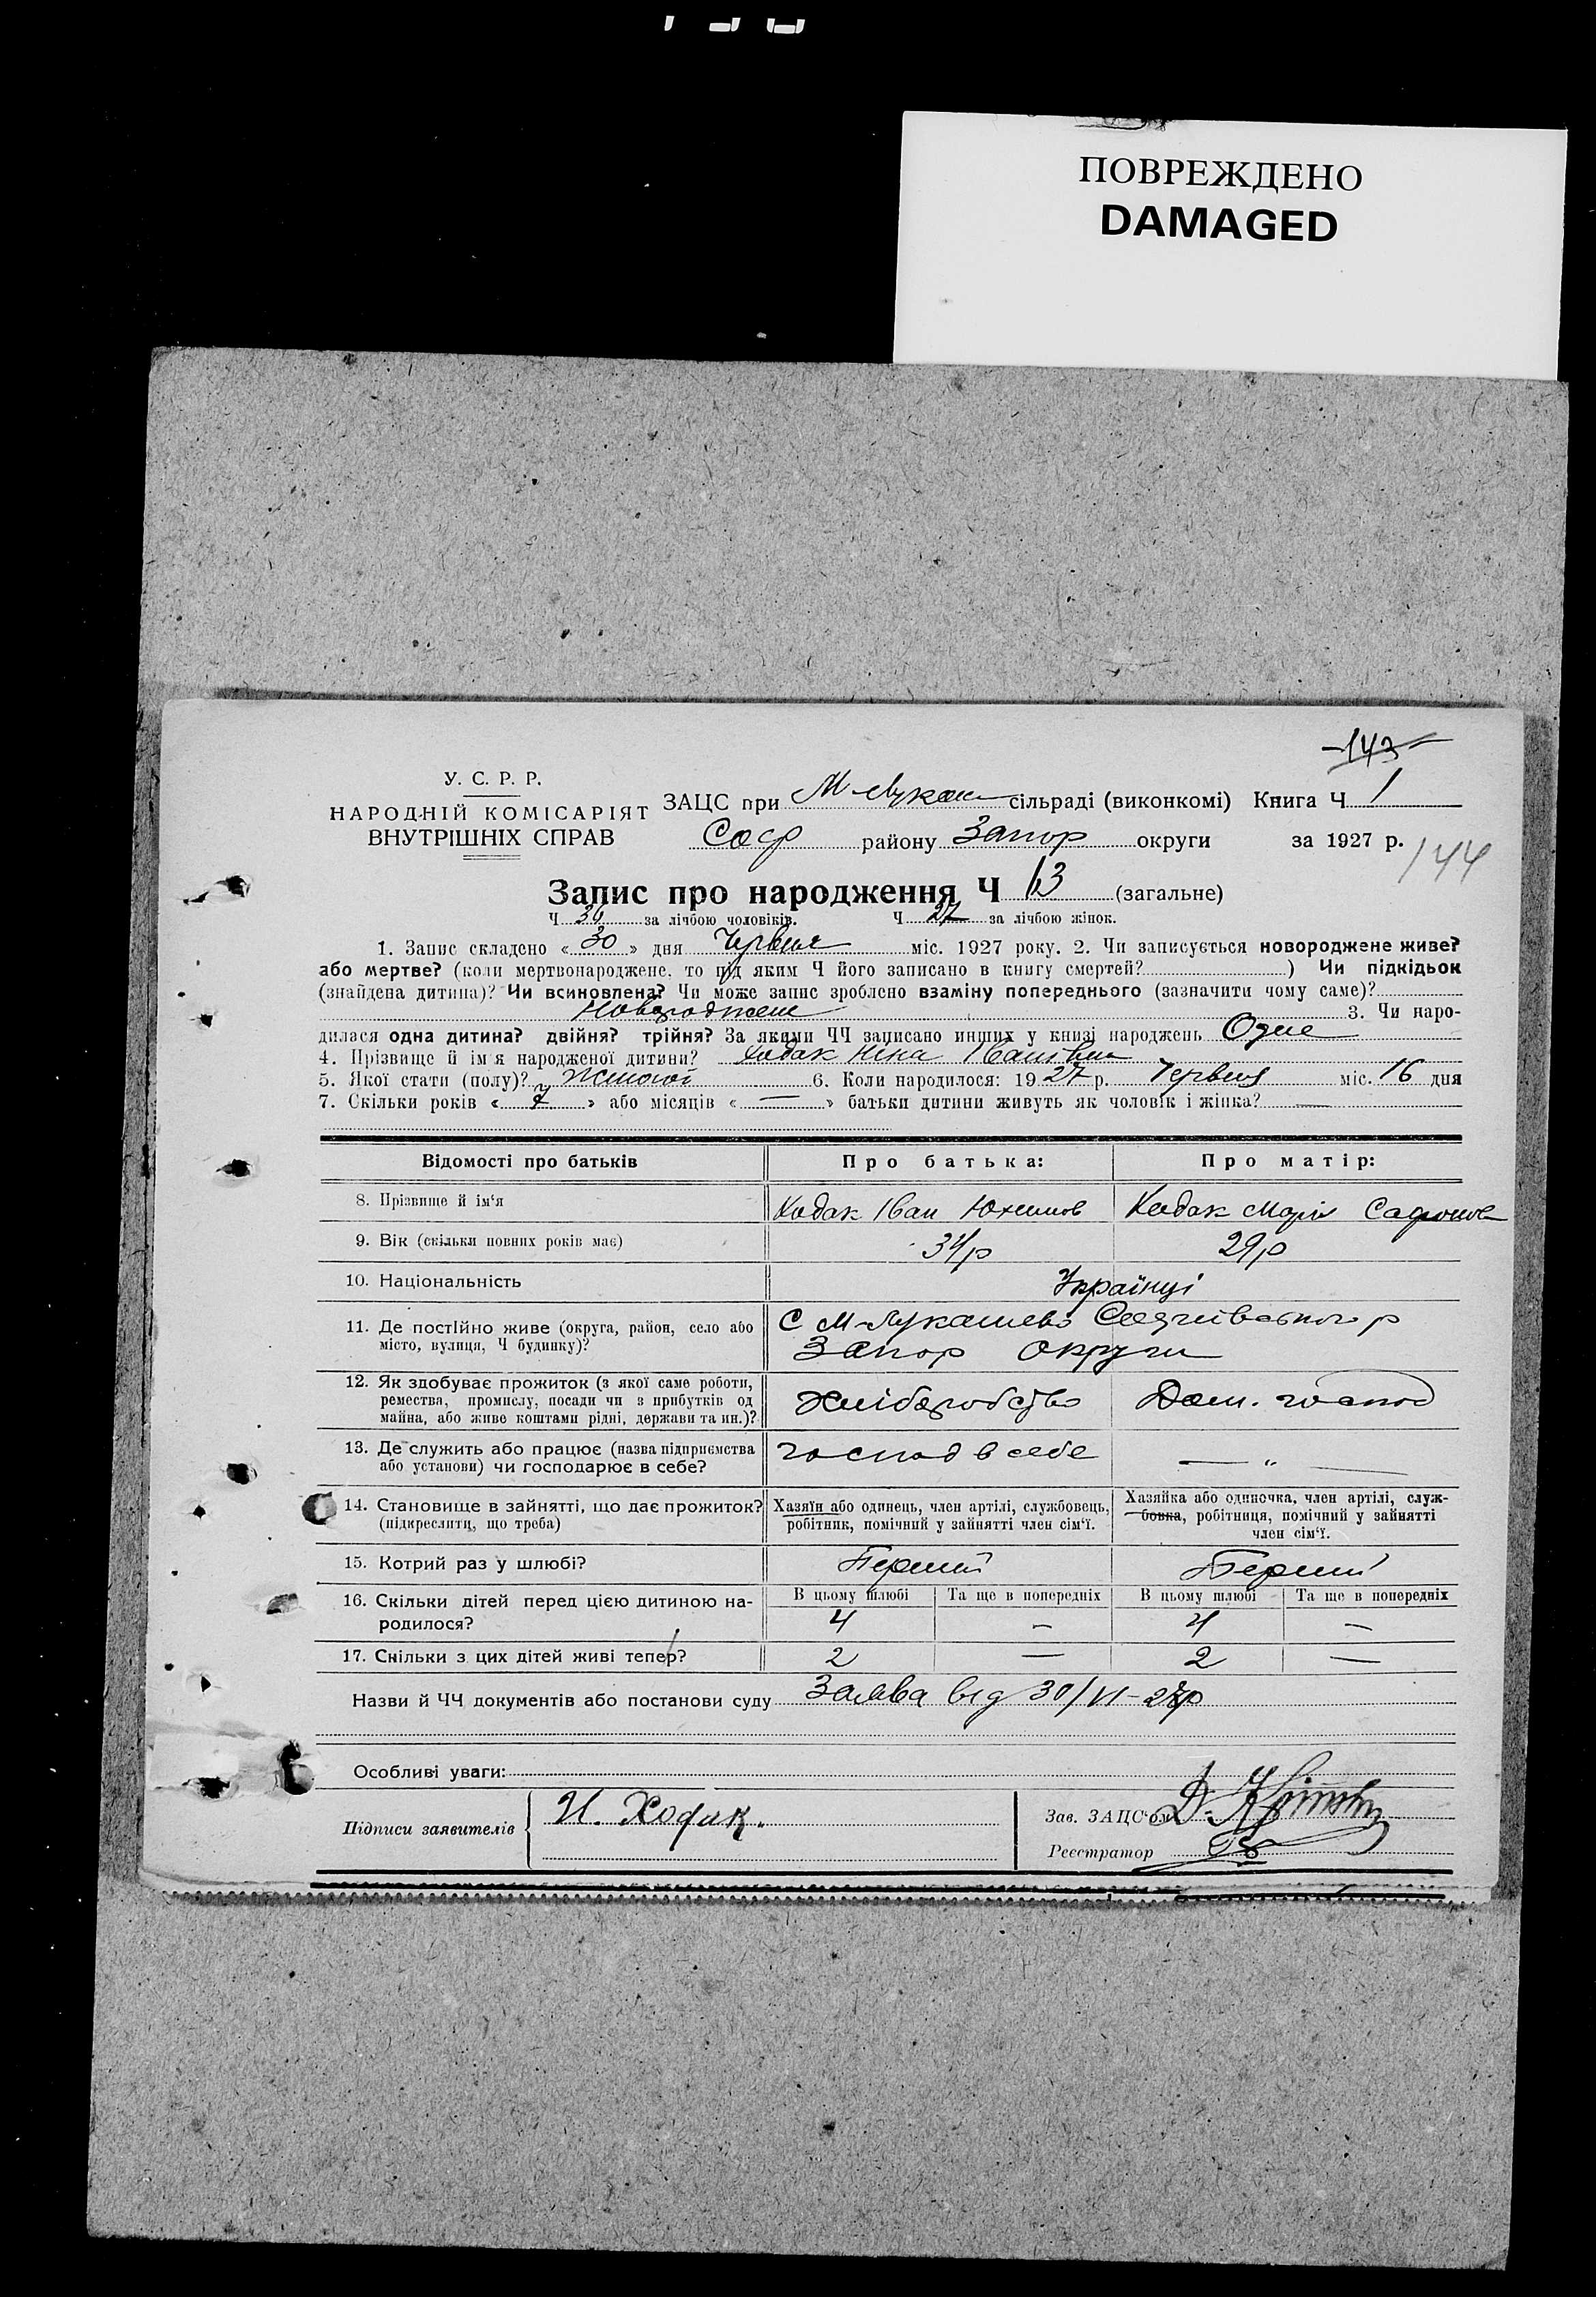 ПОВРЕЖДЕНО
DAMAGED
143
У. С. Р. Р.
НАРОДНІЙ КОМІСАРІЯТ
ВНУТРІШНІХ СПРАВ
ЗАЦС при М-Лукаш сільраді (виконкомі) Книга Ч 1
Соф району Запор округи за 1927 р.
144
Запис про народження Ч 13 (загальне)
Ч 36 за лічбою чоловіків. Ч 27 за лічбою жінок.
1. Запис складено « 30 » дня Червня міс. 1927 року. 2. Чи записується новороджене живе?
або мертве? (коли мертвонароджене, то під яким Ч його записано в книгу смертей? ) Чи підкідьок
(знайдена дитина)? Чи всиновлена? Чи може запис зроблено взаміну попереднього (зазначити чому саме)?
Новороджене 3. Чи наро-
дилася одна дитина? двійня? трійня? За якими ЧЧ записано инших у книзі народжень Одне
4. Прізвище й ім'я народженої дитини? Ходак Ніна Іванівна
5. Якої стати (полу)? Жіночої 6. Коли народилося: 19 27 р. Червня міс. 16 дня
7. Скільки років « 7 » або місяців « — » батьки дитини живуть як чоловік і жінка? —
Відомості про батьків Про батька: Про матір:
8. Прізвище й ім'я Ходак Іван Юхимов Ходак Марія Сафонов
9. Вік (скільки повних років має) 34 р 29 р
10. Національність Українці
11. Де постійно живе (округа, район, село або місто, вулиця, Ч будинку)? С М-Лукашево р
Запор Округи
12. Як здобуває прожиток (з якої саме роботи, ремества, промислу, посади чи з прибутків од майна, або живе коштами рідні, держави та ин.)? Хліборобство Дом. господ
13. Де служить або працює (назва підприємства або установи) чи господарює в себе? господ в себе — " —
14. Становище в зайнятті, що дає прожиток? (підкреслити, що треба) Хазяїн або одинець, член артілі, службовець, робітник, помічний у зайнятті член сім'ї. Хазяйка або одиночка, член артілі, служ-бовка, робітниця, помічний у зайнятті член сім'ї.
15. Котрий раз у шлюбі? Перший Перший
16. Скільки дітей перед цією дитиною на-родилося? В цьому шлюбі Та ще в попередніх В цьому шлюбі Та ще в попередніх
4 – 4 –
17. Скільки з цих дітей живі тепер? 2 — 2 —
Назви й ЧЧ документів або постанови суду Заява від 30/VI-27р
Особливі уваги:
Підписи заявителів И. Ходак. Зав. ЗАЦС'ом
Реєстратор